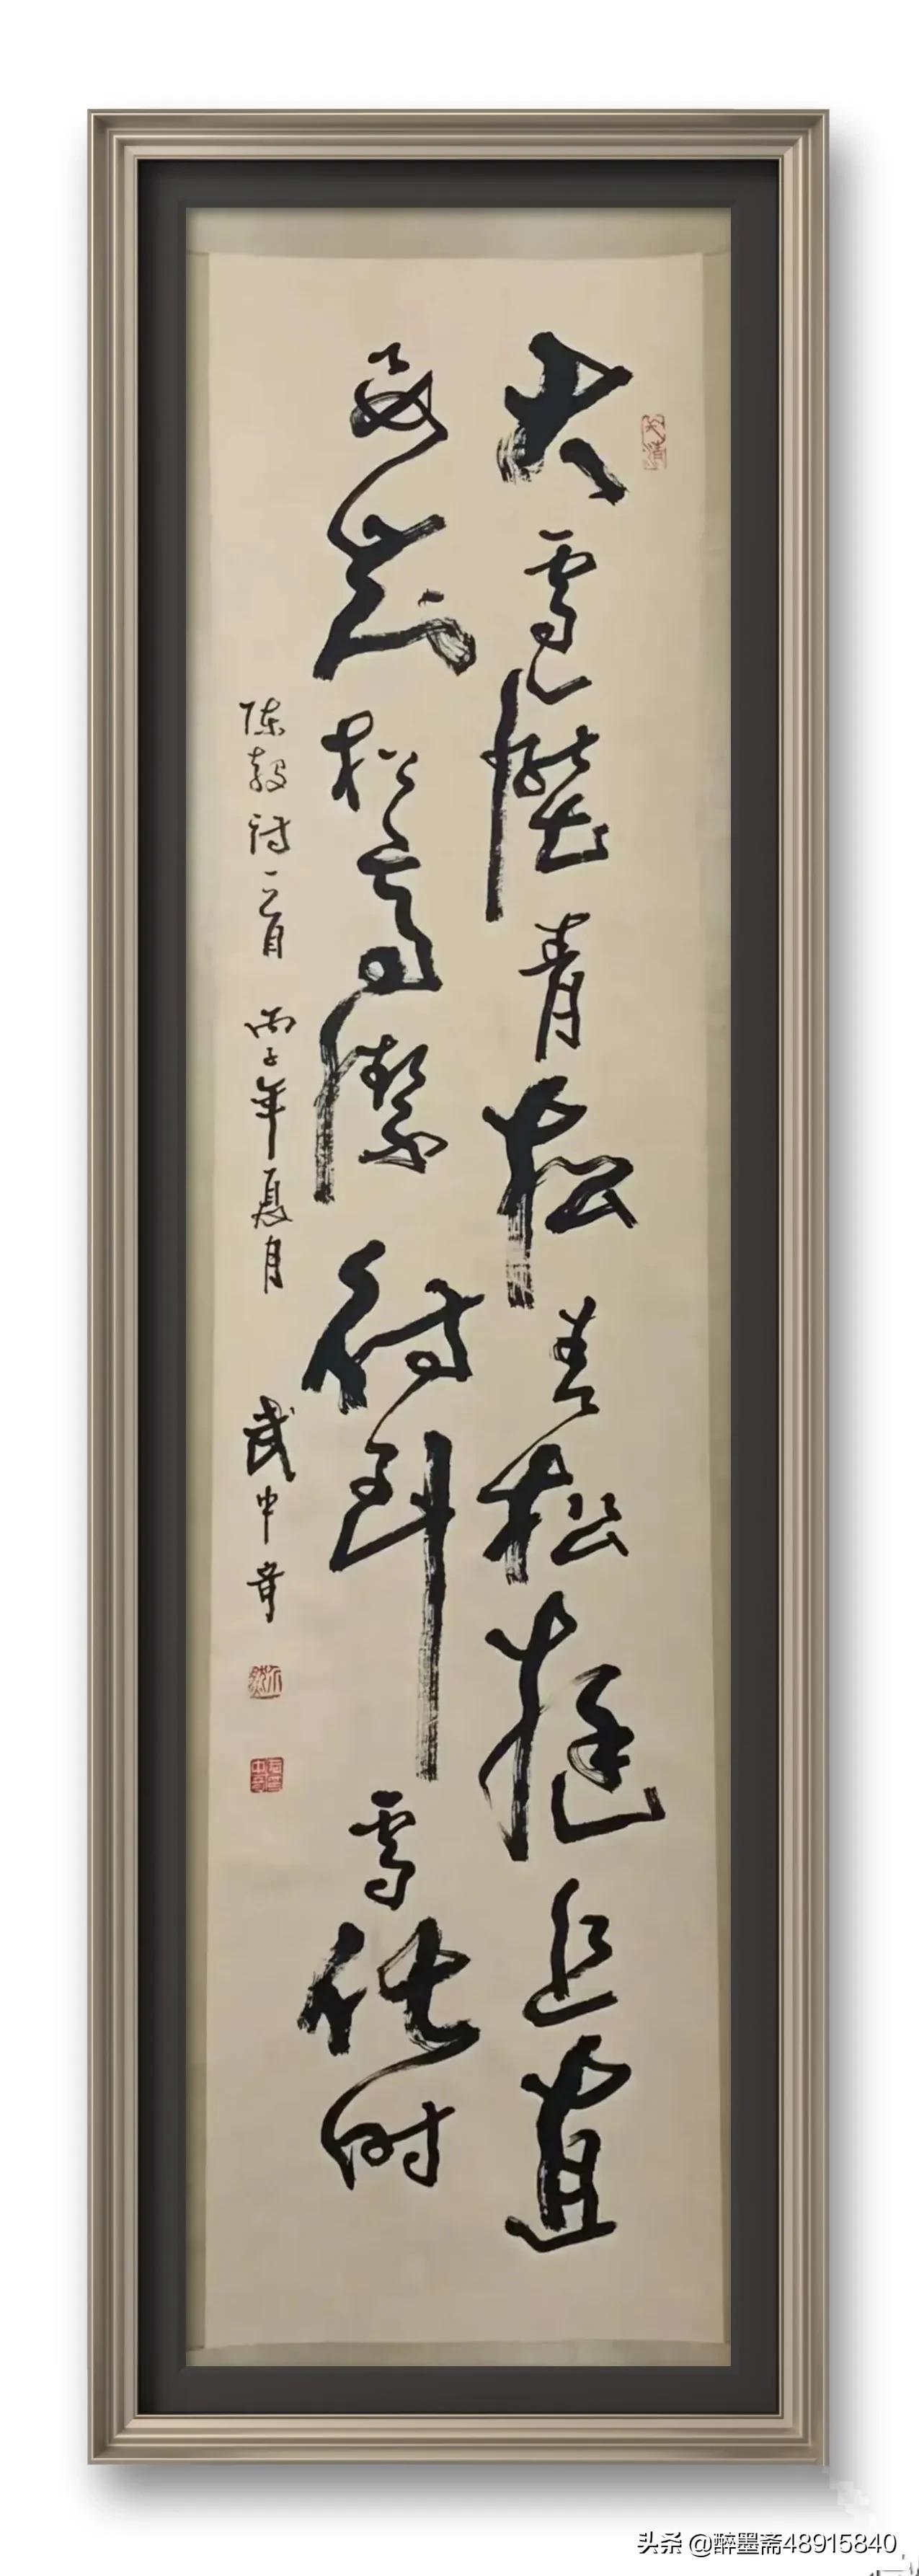 大雪壓青松青松挺且直
要知松高潔待到雪化时
陈毅诗一首 丙子年夏月 武中奇
头条 @醉墨斋48915840